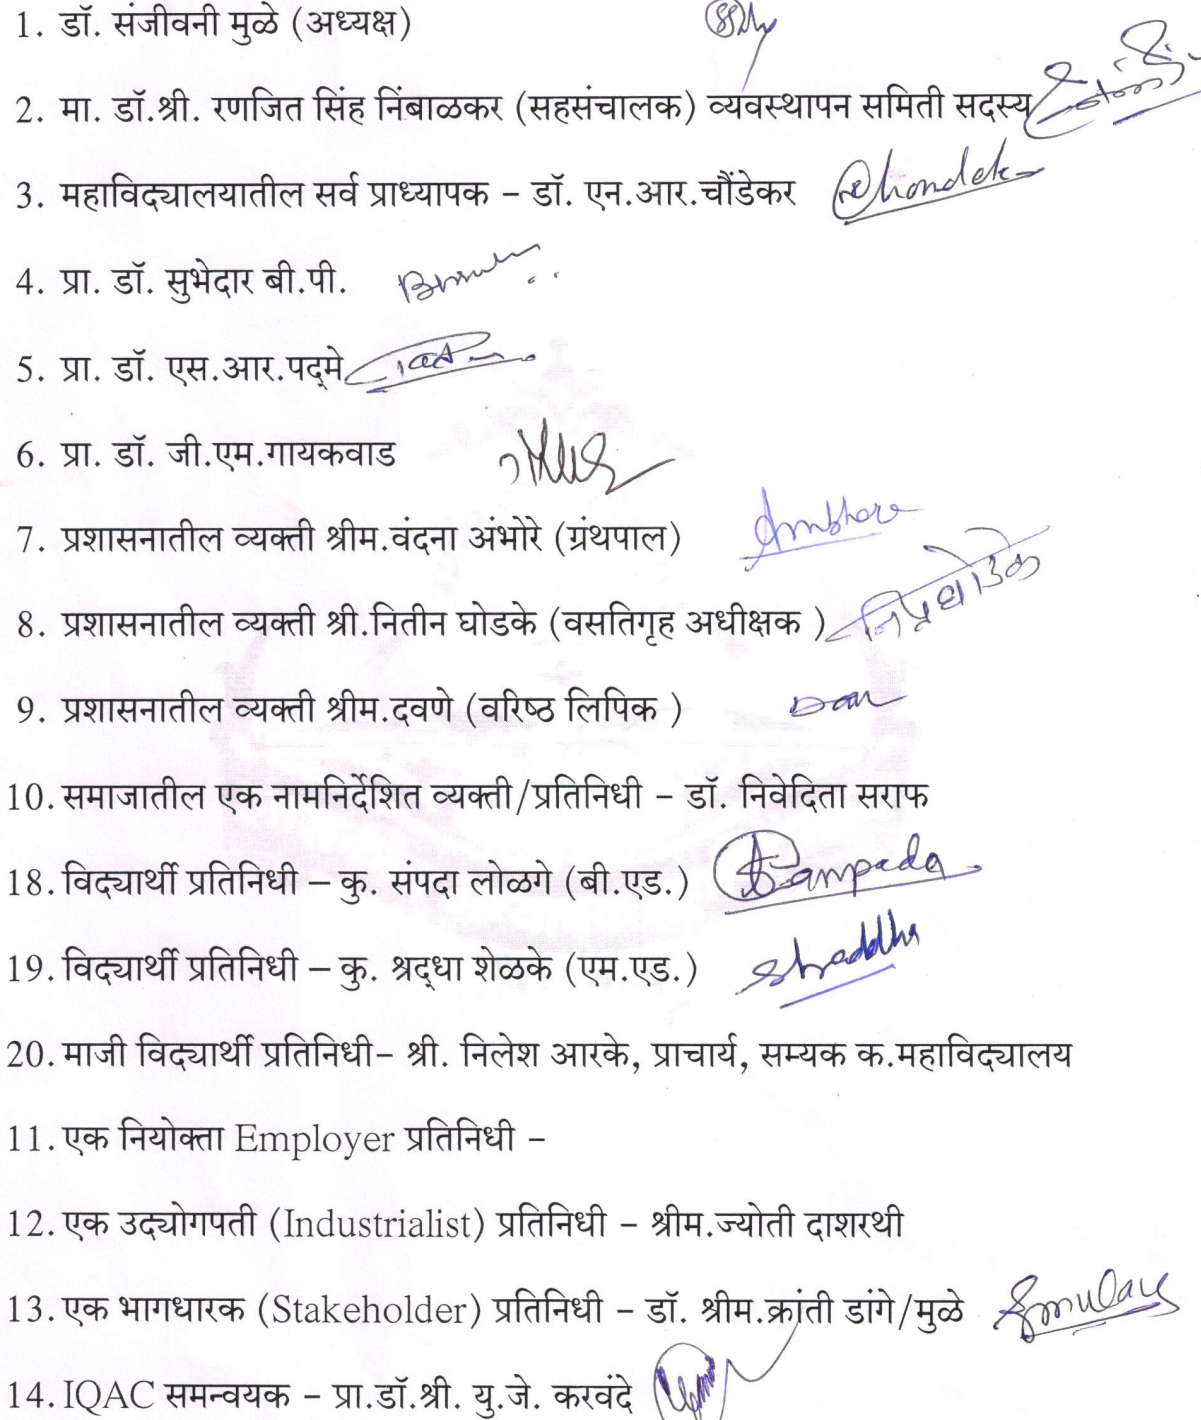 1. डॉ. संजीवनी मुळे (अध्यक्ष)
2. मा. डॉ.श्री. रणजित सिंह निंबाळकर (सहसंचालक) व्यवस्थापन समिती सदस्य
3. महाविद्यालयातील सर्व प्राध्यापक – डॉ. एन.आर.चौंडेकर
4. प्रा. डॉ. सुभेदार बी.पी.
5. प्रा. डॉ. एस.आर.पद्मे
6. प्रा. डॉ. जी.एम.गायकवाड
7. प्रशासनातील व्यक्ती श्रीम.वंदना अंभोरे (ग्रंथपाल) Ambhore
8. प्रशासनातील व्यक्ती श्री.नितीन घोडके (वसतिगृह अधीक्षक )
9. प्रशासनातील व्यक्ती श्रीम.दवणे (वरिष्ठ लिपिक )
10. समाजातील एक नामनिर्देशित व्यक्ती/प्रतिनिधी – डॉ. निवेदिता सराफ
18. विद्यार्थी प्रतिनिधी – कु. संपदा लोळगे (बी.एड.) Sampada
19. विद्यार्थी प्रतिनिधी – कु. श्रद्धा शेळके (एम.एड.) Shraddha
20. माजी विद्यार्थी प्रतिनिधी– श्री. निलेश आरके, प्राचार्य, सम्यक क.महाविद्यालय
11. एक नियोक्ता Employer प्रतिनिधी –
12. एक उद्योगपती (Industrialist) प्रतिनिधी – श्रीम.ज्योती दाशरथी
13. एक भागधारक (Stakeholder) प्रतिनिधी – डॉ. श्रीम.क्रांती डांगे/मुळे
14. IQAC समन्वयक – प्रा.डॉ.श्री. यु.जे. करवंदे